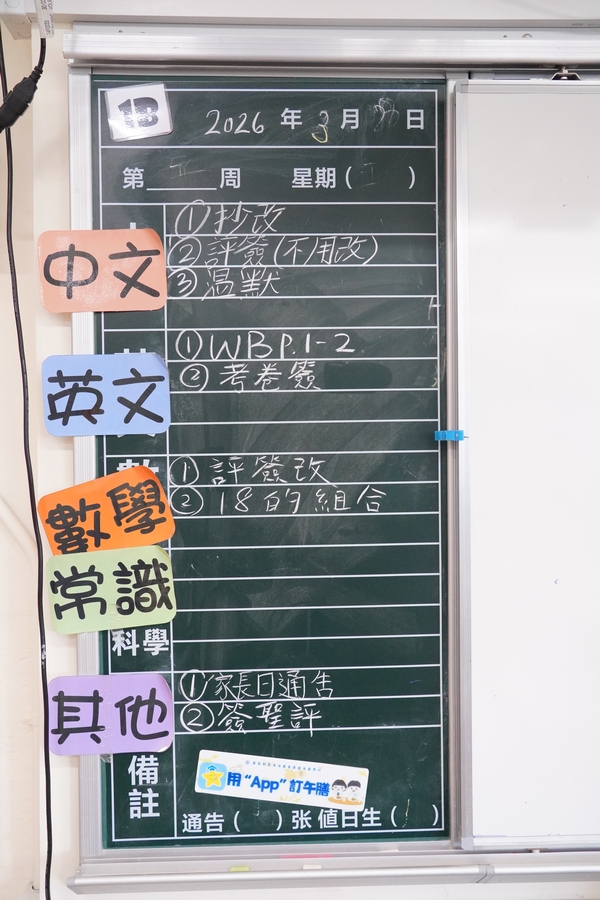 1B
2026 年 3 月 日
第 周 星期( )
中文
①抄改
②評簽(不用改)
③温默
英文
①WB P.1-2
②考卷簽
數學
①評簽改
②18的組合
常識
科學
其他
①家長日通告
②簽聖評
備註
用 “App” 訂午膳
通告( )张 值日生( )